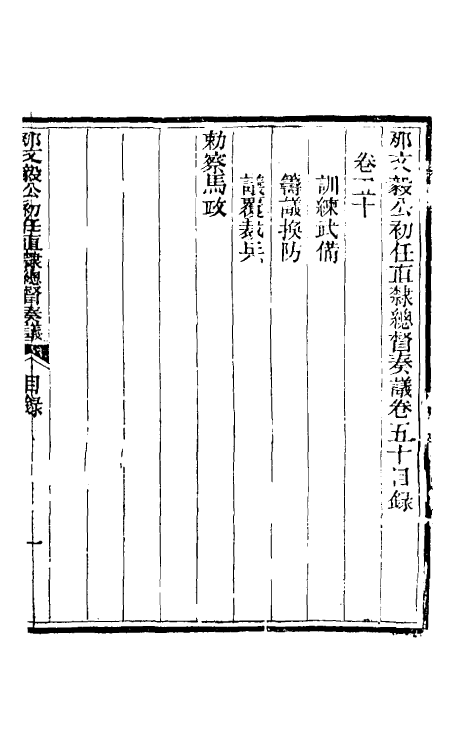 那文毅公初任直隸總督奏議卷五十目錄
卷五十
訓練武備
籌議換防
議覆裁兵
勅察馬政
那文毅公初任直隸總督奏議
目錄
一